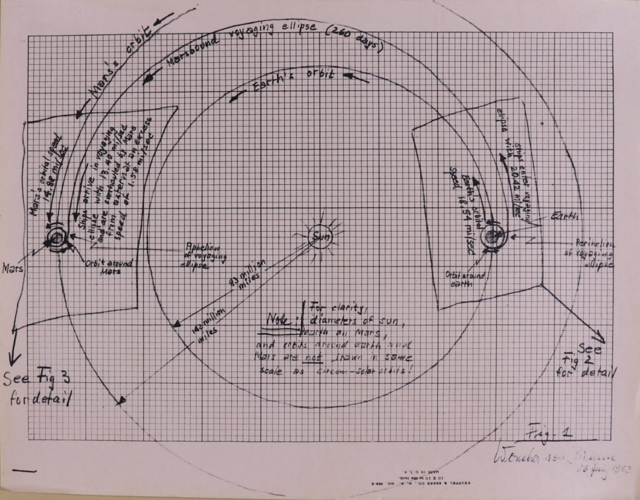 Mars's orbit
Marsbound voyaging ellipse (260 days)
Earth's orbit
Mars's orbital speed
14.98 mi/sec
Ships arrive in voyaging
ellipse with 13.40 mi/sec
and are
from
speed of 1.58 mi/sec
Ships enter voyaging
ellipse with 20.42 mi/sec
Earth's orbital
speed 18.54 mi/sec
Sun
Mars
Orbit around
Mars
Aphelion
of voyaging
ellipse
Earth
Orbit around
earth
Perihelion
of voyaging
ellipse
93 million
miles
miles
Note: For clarity,
diameters of sun,
earth Mars,
and orbits around earth and
Mars are not shown in same
scale as circum-solar orbits!
See Fig 3
for detail
See
Fig 2
for detail
Fig. 1
KEUFFEL & ESSER CO.
MADE IN U.S.A.